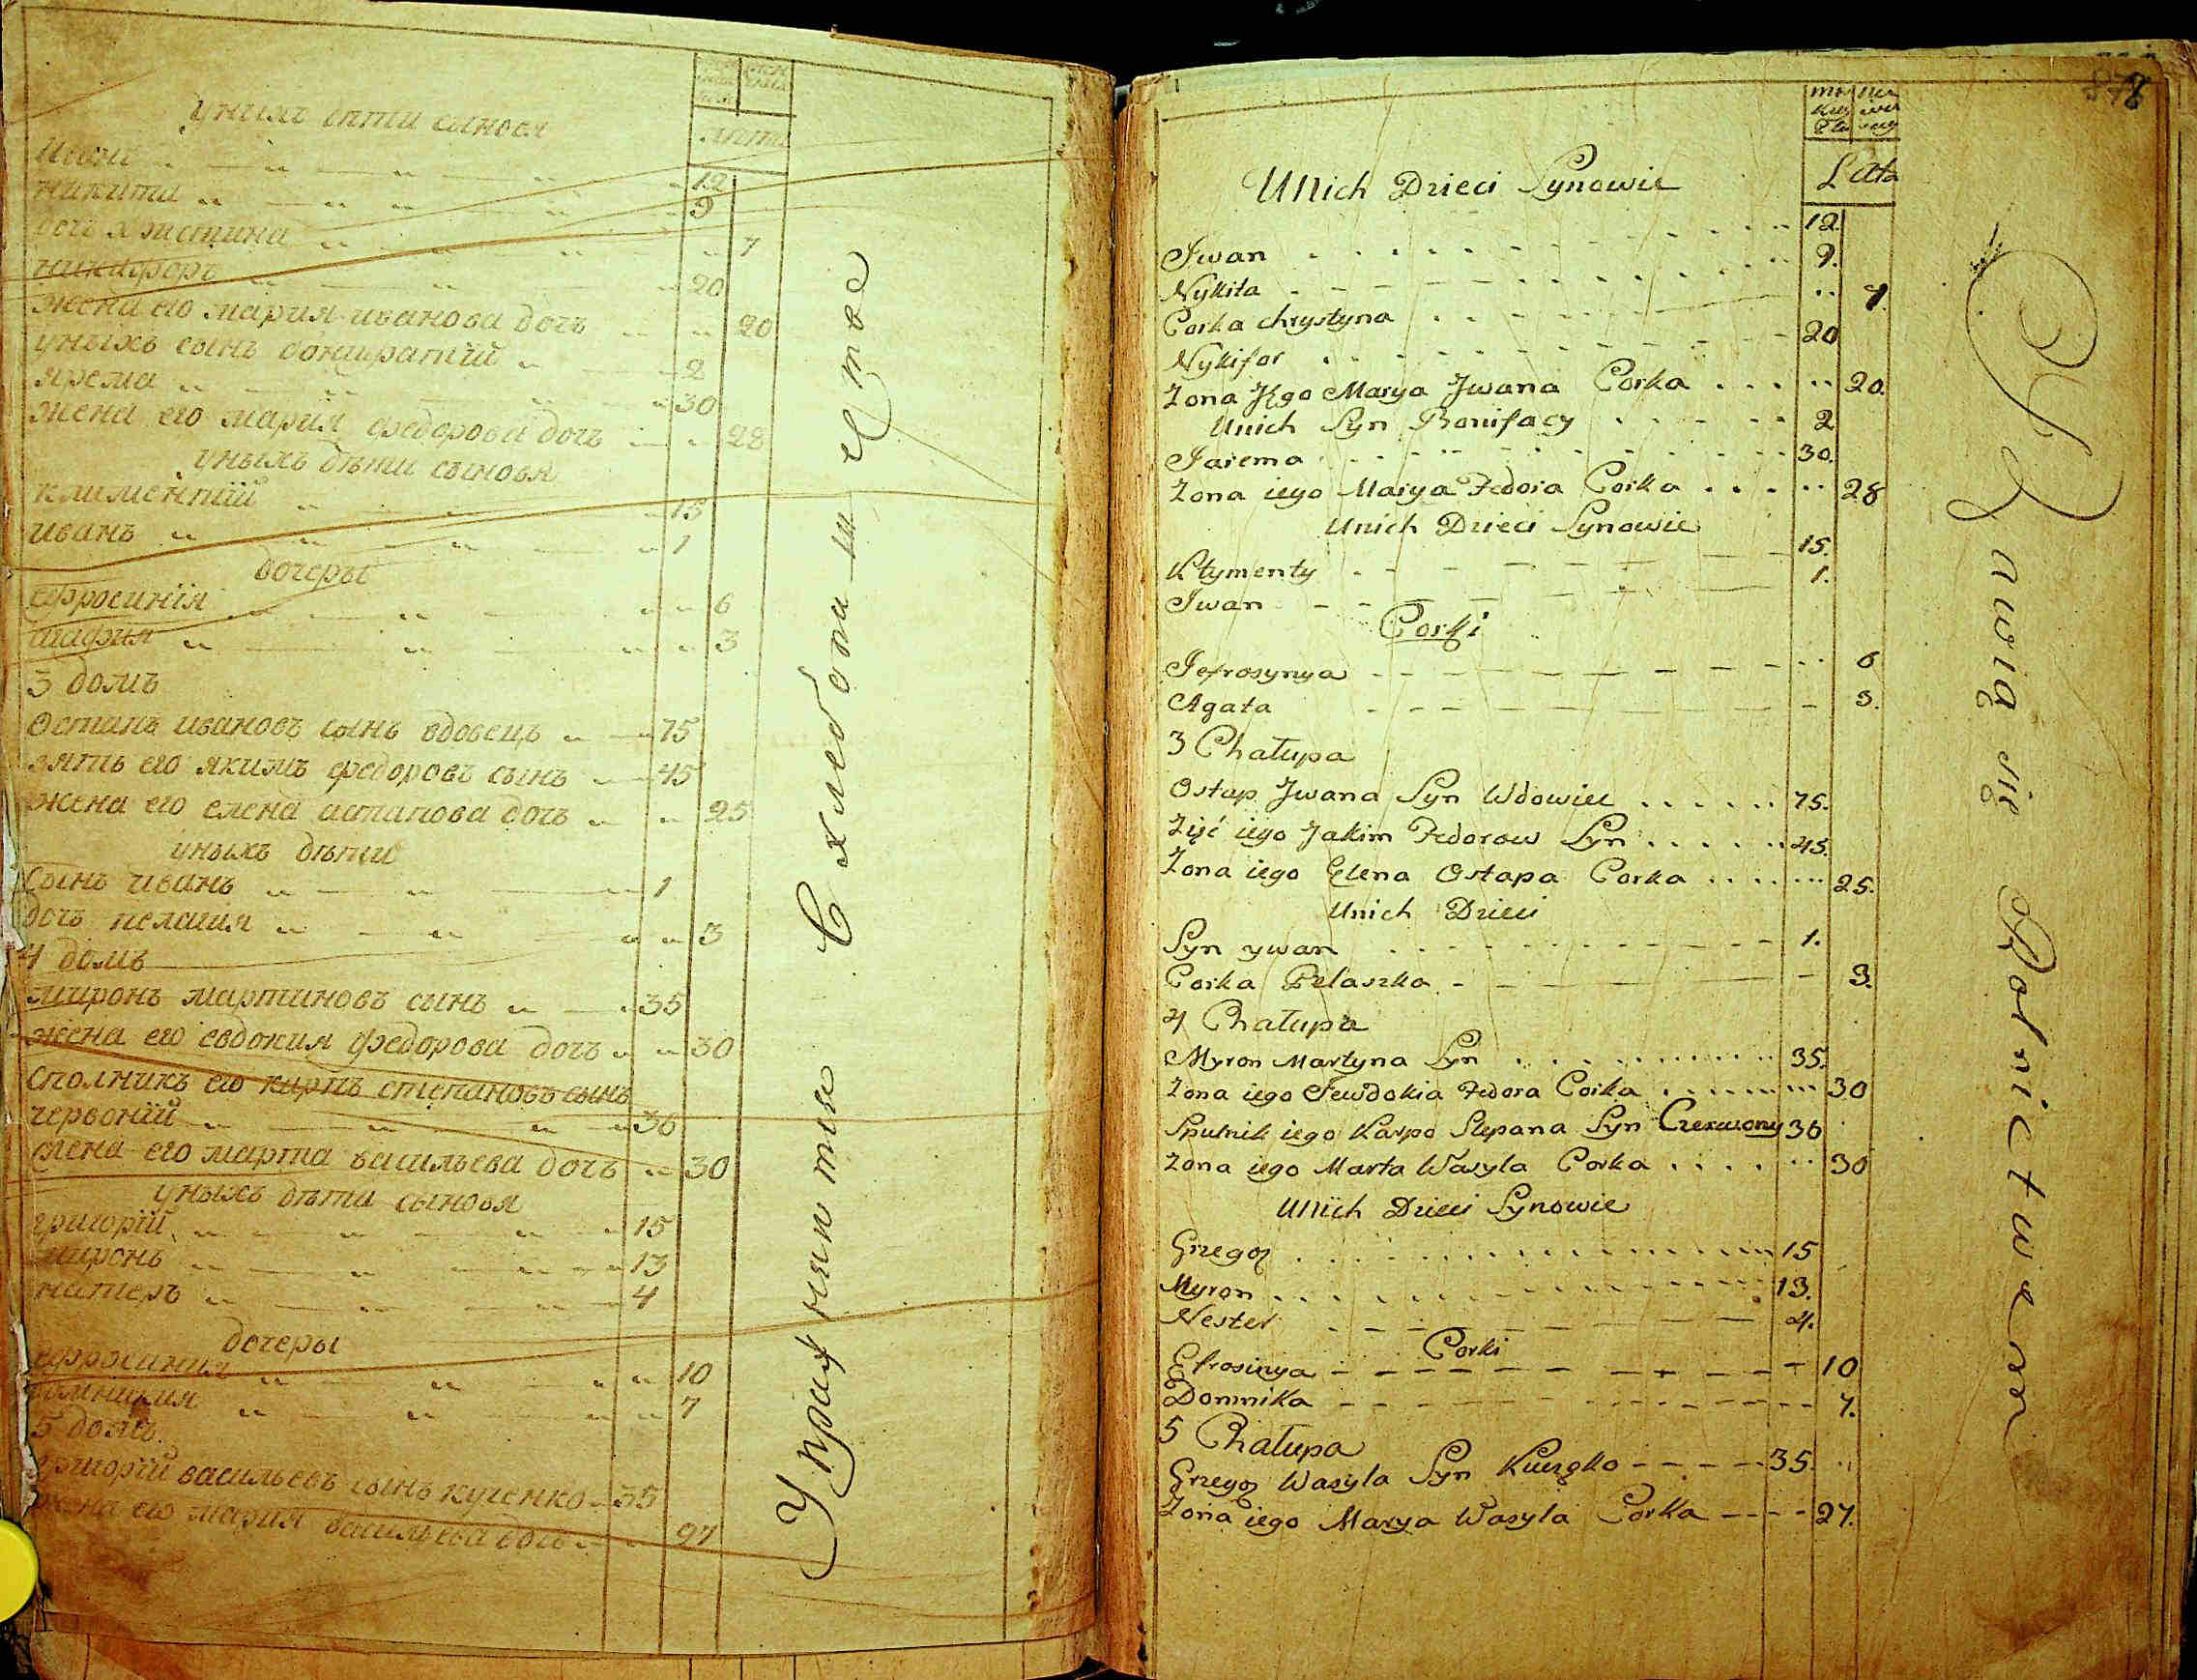 унихъ дѣти синовя
лѣта
иванъ 12
никита 9
дочъ христина 7
никифоръ 20
жена его мария иванова дочъ 20
унихъ сынъ бонифатий 2
ярема 30
жена его мария федорова дочъ 28
унихъ дѣти сыновя
климентий 15
иванъ 1
дочеры
ефросиния 6
агафия 3
3 домъ
Остапъ ивановъ сынъ вдовецъ 75
зять его якимъ федоровъ сынъ 45
жена его елена астапова дочъ 25
унихъ дѣти
Сынъ иванъ 1
дочъ пелагия 3
4 домъ
миронъ мартиновъ сынъ 35
жена его евдокия федорова дочъ 30
сполникъ его карпъ степановъ сынъ
червоний 36
жена его марта васильева дочъ 30
унихъ дѣти сыновя
григорий 15
миронъ 13
нестеръ 4
дочеры
ефросиния 10
домникия 7
5 домъ
григорий васильевъ сынъ кученко 35
жена его мария васильева дочъ 27
Упражняются Хлебопашеством
878
Lata
Unich Dzieci Synowie
Iwan 12
Nykita 9.
Corka Chrystyna 7.
Nykifor 20
Zona Jego Marya Jwana Corka 20.
Unich Syn Bonifacy 2
Jarema 30.
Zona iego Marya Fedora Corka 28
Unich Dzieci Synowie
Klymenty 15.
Iwan 1.
Corki
Iefrosynya 6
Agata 3.
3 Chałupa
Ostap Jwana Syn Wdowiec 75.
Zięć iego Jakim Fedorow Syn 45.
Zona iego Elena Ostapa Corka 25.
Unich Dzieci
Syn ywan 1.
Corka Pelaszka 3.
4 Chałupa
Myron Martyna Syn 35.
Zona iego Iewdokia Fedora Corka 30
Spulnik iego Karpo Stepana Syn Czerwony 36
Zona iego Marta Wasyla Corka 30
Unich Dzieci Synowie
Grzegoz 15
Myron 13.
Nester 4.
Corki
Efrosinya 10
Domnika 7.
5 Chałupa
Grzegoz Wasyla Syn Kuczęko 35.
Zona iego Marya Wasyla Corka 27.
Bawią się Rolnictwem